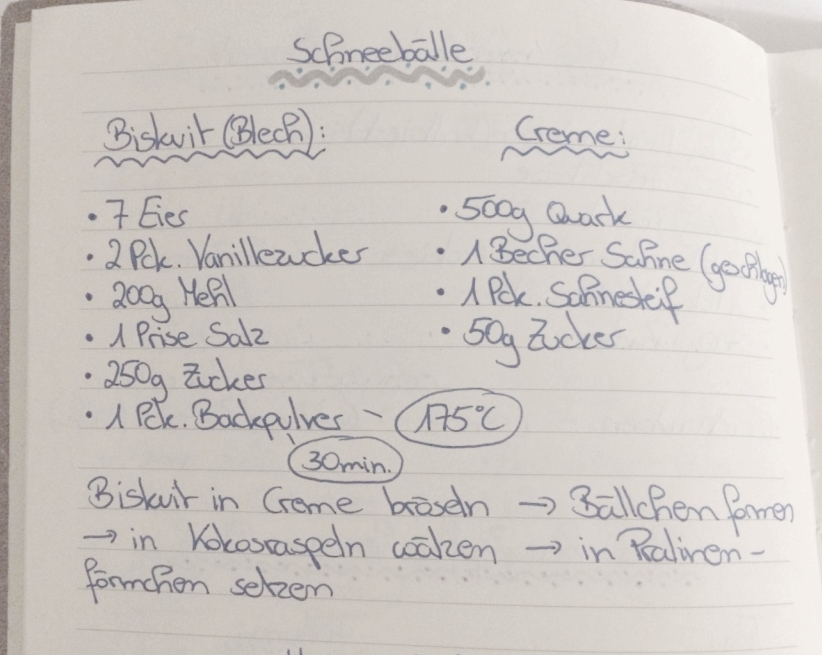 Schneebälle
Biskuit (Blech):
• 7 Eier
• 2 Pck. Vanillezucker
• 200g Mehl
• 1 Prise Salz
• 250g Zucker
• 1 Pck. Backpulver - 175°C
30min.
Creme:
• 500g Quark
• 1 Becher Sahne (geschlagen)
• 1 Pck. Sahnesteif
• 50g Zucker
Biskuit in Creme bröseln → Bällchen formen
→ in Kokosraspeln wälzen → in Pralinen-
förmchen setzen